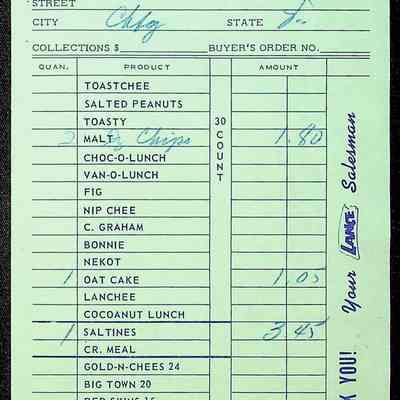 STREET
CITY Chfg STATE
COLLECTIONS $ BUYER'S ORDER NO.
QUAN. PRODUCT AMOUNT
TOASTCHEE
SALTED PEANUTS
TOASTY
2 MALT Chips 1.80
CHOC-O-LUNCH
VAN-O-LUNCH
FIG
NIP CHEE
C. GRAHAM
BONNIE
NEKOT
1 OAT CAKE 1.05
LANCHEE
COCOANUT LUNCH
1 SALTINES 3.45
CR. MEAL
GOLD-N-CHEES 24
BIG TOWN 20
RED SKINS 15
30 COUNT
YOU! Your LANCE Salesman